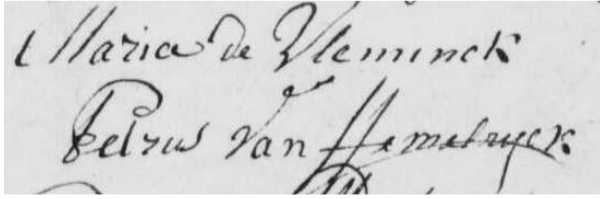 Maria de Vleminck
Petrus Van Hemelryck